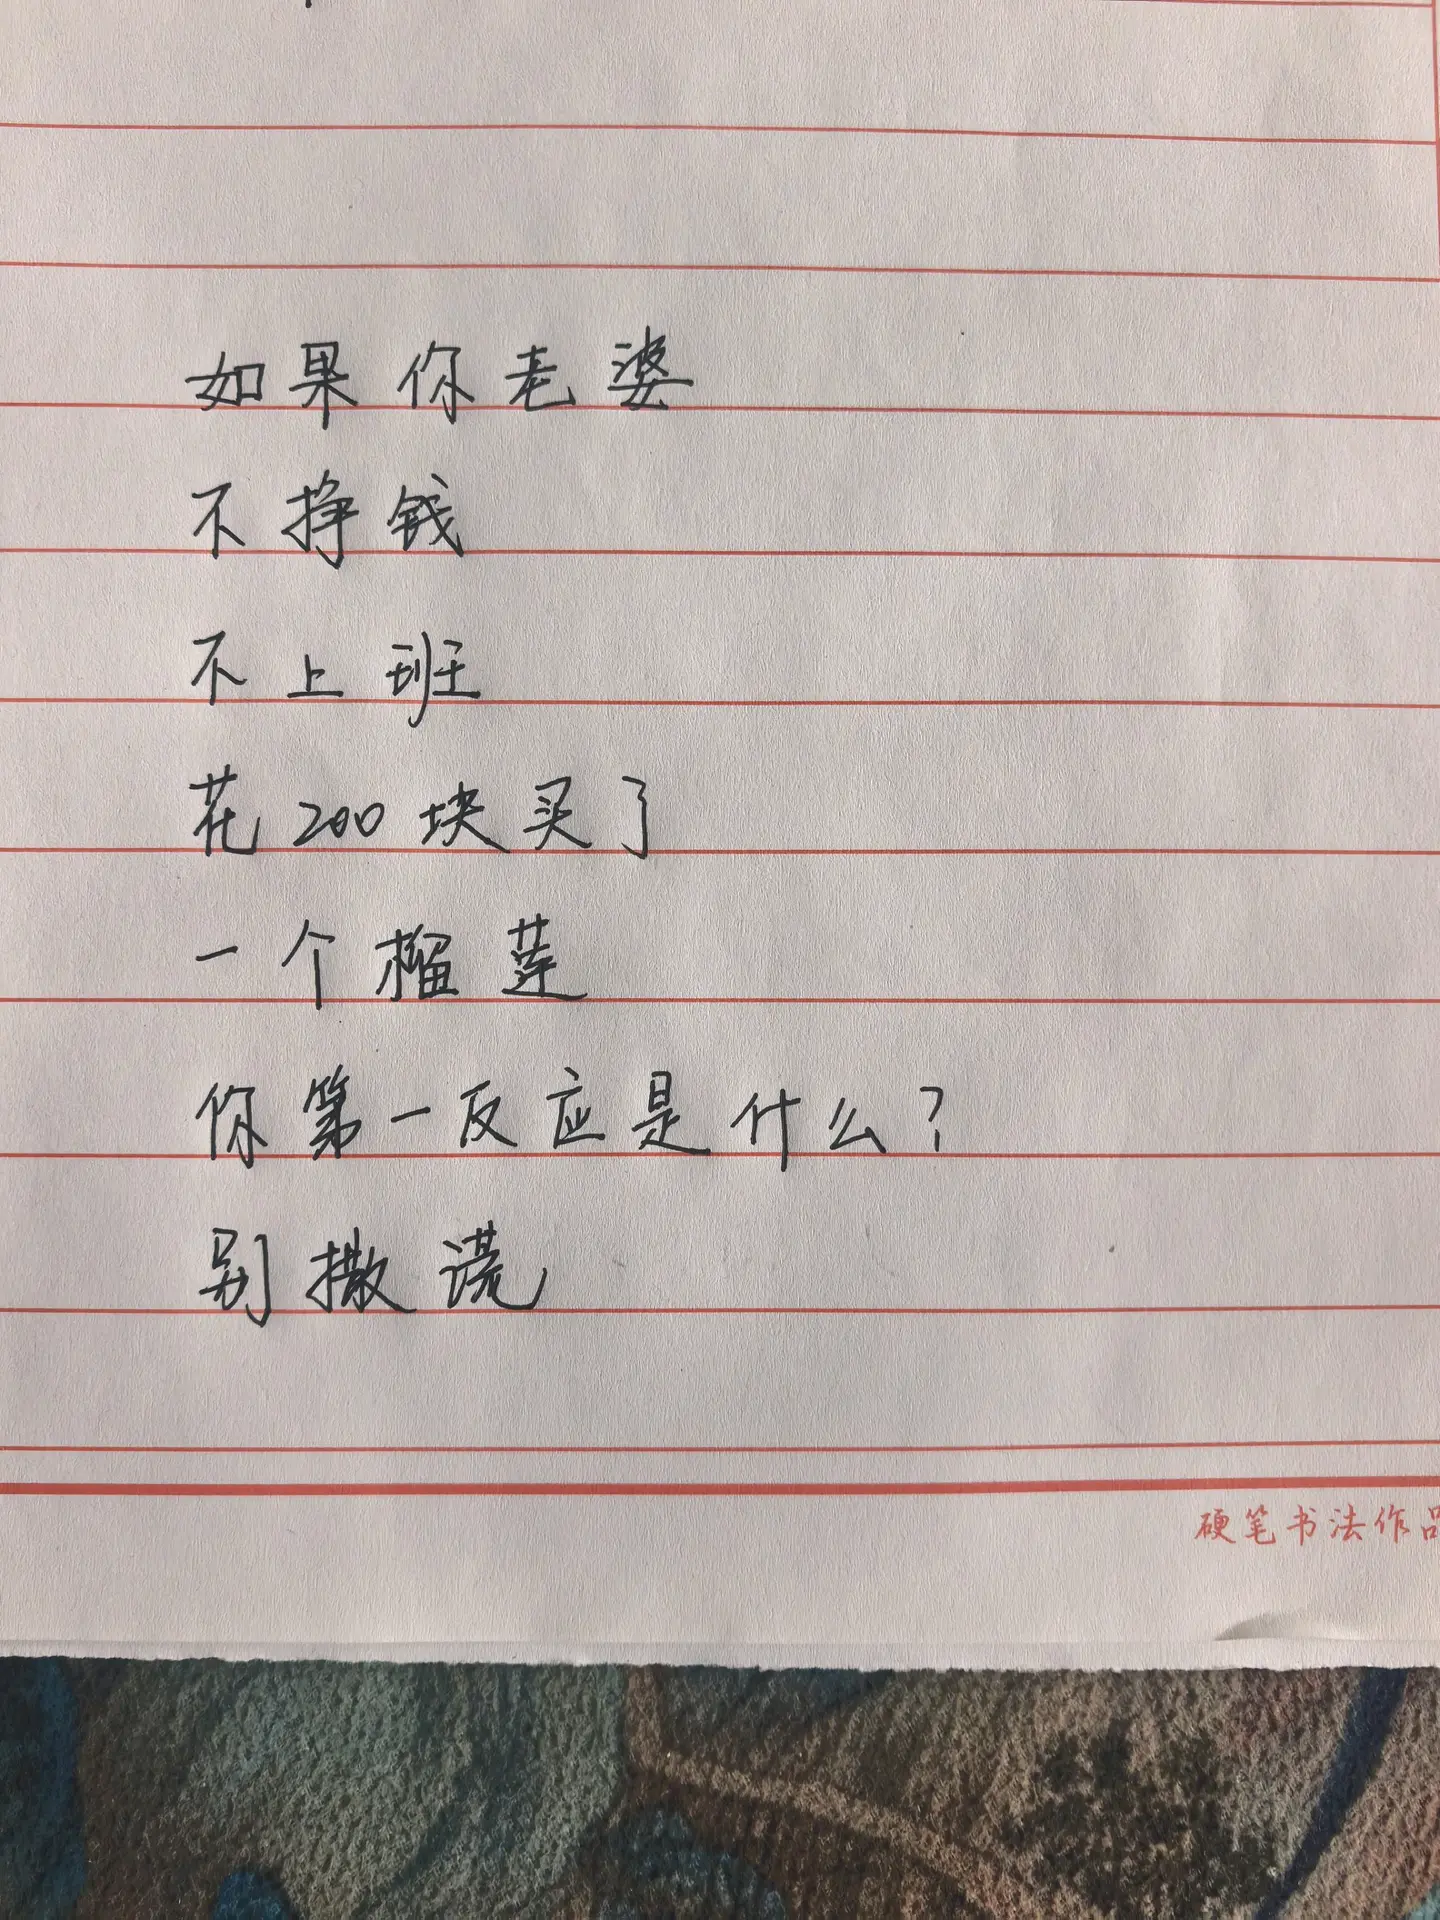 如果你老婆
不挣钱
不上班
花200块买了
一个榴莲
你第一反应是什么?
别撒谎
硬笔书法作品